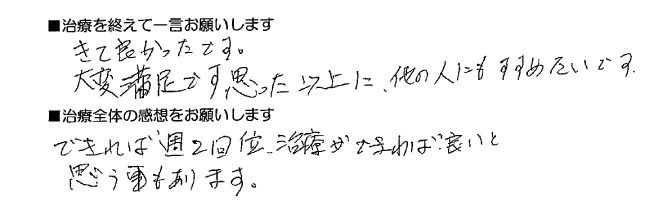 ■治療を終えて一言お願いします
きて良かったです。
大変満足です思った以上に、他の人にもすすめたいです.
■治療全体の感想をお願いします
できれば週2回位、治療ができれば良いと
思う事もあります。